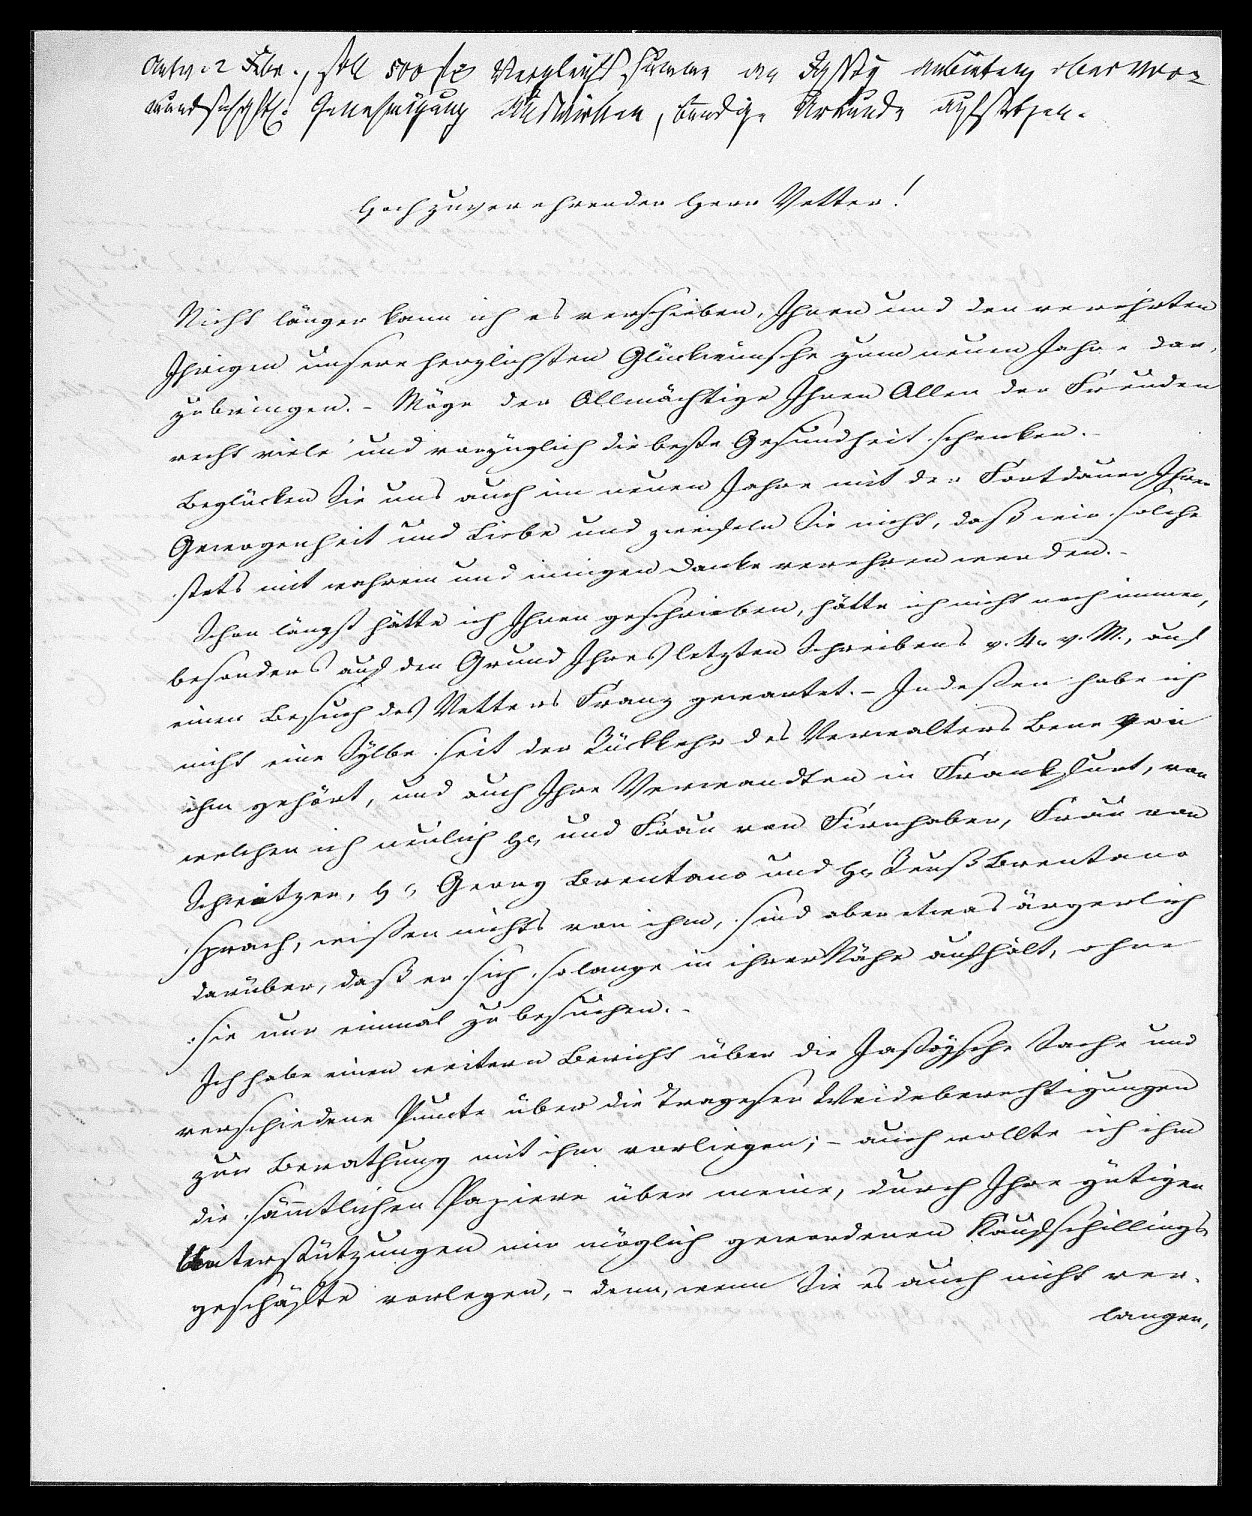 Antw. 2 Febr., soll 500 fl Vergleichssumme an Jassoy anbieten obervor-
mundschaftl. Genehmigung auswirken, bündige Urkunde aufsetzen.
Hochzuverehrender Herr Vetter!
Nicht länger kann ich es verschieben, Ihnen und den verehrten
Ihrigen unsere herzlichsten Glückwünsche zum neuen Jahre dar-
zubringen. - Möge der Allmächtige Ihnen Allen der Freuden
recht viele und vorzüglich die beste Gesundheit schenken. -
Beglücken Sie uns auch im neuen Jahre mit der Fortdauer Ihrer
Gewogenheit und Liebe und zweifeln Sie nicht, daß wir solche
stets mit wahrem und innigen Danke verehren werden. -
Schon längst hätte ich Ihnen geschrieben, hätte ich nicht noch immer,
besonders auf den Grund Ihres letzten Schreibens v. 4. v. M., auf
einen Besuch des Vetters Franz gewartet. - Indeßen habe ich
nicht eine Sylbe seit der Rückkehr des Verwalters Bene von
ihm gehört, und auch Ihre Verwandten in Frankfurt, von
welchen ich neulich Hr und Frau von Firnhaber, Frau von
Schweitzer, Hr Georg Brentano und Hr Reuß Brentano
sprach, wißen nichts von ihm, sind aber etwas ärgerlich
darüber, daß er sich solange in ihrer Nähe aufhält, ohne
sie nur einmal zu besuchen. -
Ich habe einen weitern Bericht über die Jassoysche Sache und
verschiedene Puncte über die Trageser Weideberechtigungen
zur Berathung mit ihm vorliegen; - auch wollte ich ihm
die sämtlichen Papiere über meine, durch Ihre gütigen
Unterstützungen mir möglich gewordenen Kaufschillings-
geschäfte vorlegen, - denn, wenn Sie es auch nicht ver-
langen,